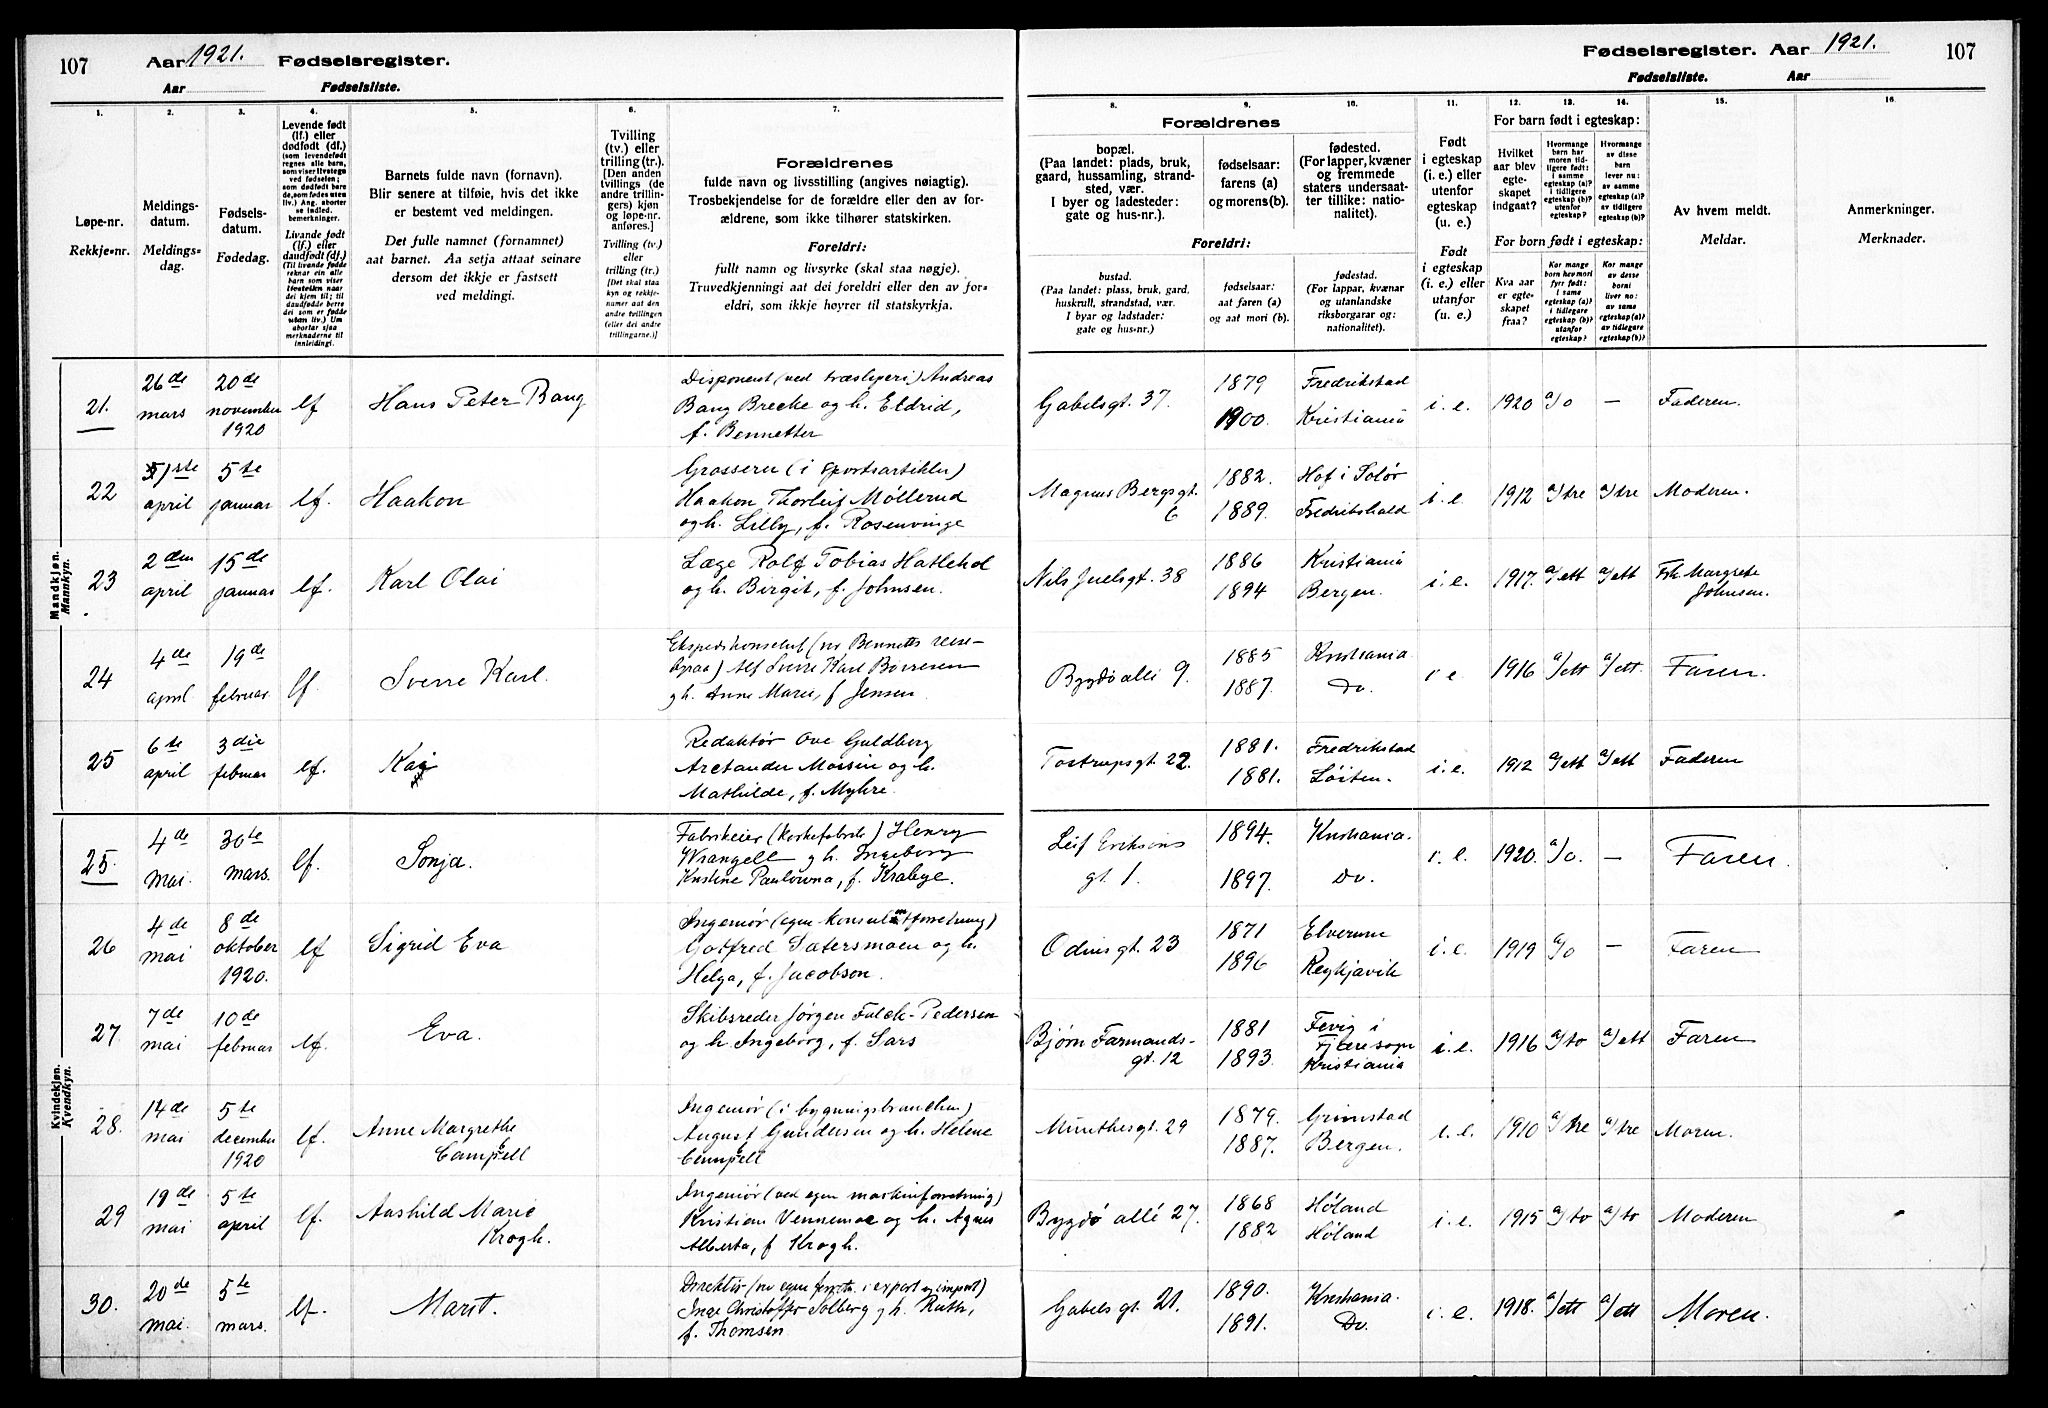 107 Aar 1921. Fødselsregister.
Aar Fødselsliste.
Fødselsregister. Aar 1921. 107
Fødselsliste. Aar
1. 2. 3. 4. 5. 6. 7. 8. 9. 10. 11. 12. 13. 14. 15. 16.
Løpe-nr.
Rekkje-nr.
Meldings-
datum.
Meldings-
dag.
Fødsels-
datum.
Fødedag.
Levende født
(lf.) eller
dødfødt (df.)
Livande født
(lf.) eller
daudfødt (df.)
Barnets fulde navn (fornavn).
Blir senere at tilføie, hvis det ikke
er bestemt ved meldingen.
Det fulle namnet (fornamnet)
aat barnet. Aa setja attaat seinare
dersom det ikkje er fastsett
ved meldingi.
Tvilling
(tv.) eller
trilling (tr.).
[Den anden
tvillings (de
andre trillin-
gers) kjøn
og løpe-nr.
anføres.]
Tvilling (tv.)
eller
trilling (tr.)
[Det skal staa
kyn og rekkje-
numer aat den
andre tvillingen
(eller dei andre
trillingarne.)]
Forældrenes
fulde navn og livsstilling (angives nøiagtig).
Trosbekjendelse for de forældre eller den av for-
ældrene, som ikke tilhører statskirken.
Foreldri:
fullt namn og livsyrke (skal staa nøgje).
Truvedkjenningi aat dei foreldri eller den av for-
eldri, som ikkje høyrer til statskyrkja.
Forældrenes
bopæl.
(Paa landet: plads, bruk,
gaard, hussamling, strand-
sted, vær.
I byer og ladesteder:
gate og hus-nr.).
fødselsaar:
farens (a)
og morens (b).
fødested.
(For lapper, kvæner
og fremmede
staters undersaat-
ter tillike: natio-
nalitet).
Foreldri:
bustad.
(Paa landet: plass, bruk, gard,
huskrull, strandstad, vær.
I byar og ladstader:
gate og hus-nr.)
fødselsaar:
aat faren (a)
og aat mori (b).
fødestad.
(For lappar, kvænar
og utanlandske
riksborgarar og:
nationalitet).
Født
i egteskap
(i. e.) eller
utenfor
egteskap
(u. e.)
Født
i egteskap
(i. e.) eller
utanfor
(u. e.)
For barn født i egteskap:
Hvilket
aar blev
egte-
skapet
indgaat?
For born født i egteskap:
Kva aar
er egte-
skapet
fraa?
Av hvem meldt.
Meldar.
Anmerkninger.
Merknader.
Mandkjøn.
Mannkyn.
21. 26de mars 20de november 1920 lf Hans Peter Bang
Disponent (ved træsliperi) Andreas
Bang Brecke og h. Eldrid,
f. Bennetter
Gabelsgt. 37. 1879 1900. Fredrikstad Kristiania i. e. 1920 a/o — Faderen.
22 1ste april 5te januar lf. Haakon
Grosserer (i sportsartikler)
Haakon Thorleif Møllerud
og h. Lilly, f. Rosenvinge
Magnus Bergsgt. 6 1882. 1889. Hof i Solør Fredrikshald i. e. 1912 a/tre a/tre Moderen.
23 2den april 15de januar lf. Karl Olai
Læge Rolf Tobias Hatlehol
og h. Birgit, f. Johnsen.
Nils Juelsgt. 38 1886 1894 Kristiania Bergen. i. e. 1917. a/ett a/ett Frk. Margrete Johnsen.
24 4de april 19de februar lf. Sverre Karl.
Alf Sverre Karl Børresen
g h. Anne Marie, f Jensen.
Bygdø alle 9. 1885 1887. Kristiania Do. i e. 1916 a/ett a/ett. Faren.
25 6te april 3die februar lf. Kai
Redaktør Ove Guldberg
Arctander Moisin og h.
Mathilde, f. Myhre.
Tostrupsgt. 22. 1881. 1881. Fredrikstad Løiten. i. e. 1912 a/ett a/ett Faderen
Kvindekjøn.
Kvendkyn.
25. 4de mai. 30te mars. lf. Sonja.
Fabrikeier (korkefabrik) Henry
Wrangell g h. Ingeborg
Kristine Paulowna, f. Krabye.
Leif Eriksons gt. 1. 1894. 1897. Kristiania. Do. i. e. 1920. a/o. — Faren.
26 4de mai 8de oktober 1920. lf Sigrid Eva
Ingeniør (egen konsulentforretning)
Godfred Satersmoen og h.
Helga, f. Jacobson.
Odins gt. 23 1871 1896 Elverum Reykjavik i. e. 1919 a/o — Faren
27. 7de mai 10de februar lf. Eva.
Skibsreder Jørgen Falck-Pedersen
og h. Ingeborg, f. Sars
Bjørn Farmands-gt. 12 1881 1893. Fevig i Fjæresogn Kristiania i. e. 1916 a/to a/ett Faren
28. 14de mai 5te december 1920 lf. Anne Margrethe Campbell
Ingeniør (i bygningsbranchen)
August Gundersen og h. Helene
Campbell
Munthesgt. 29 1879. 1887. Grimstad Bergen. i. e. 1910 a/tre a/tre Moren.
29 19de mai 5te april lf. Aashild Marie Krogh.
Ingeniør (ved egen maskinforretning)
Kristian Vennemoe og h. Agnes
Alberta, f Krogh.
Bygdø allé 27. 1868 1882 Høland Høland i. e. 1915 a/to a/to Moderen
30. 20de mai. 5te mars. lf. Marit.
Direktør (ved egen forretn. i export og import)
Inge Christoffer Solberg g h. Ruth,
f. Thomsen
Gabels gt. 21. 1890. 1891. Kristiania. Do. i. e. 1918. a/ett a/ett Moren.